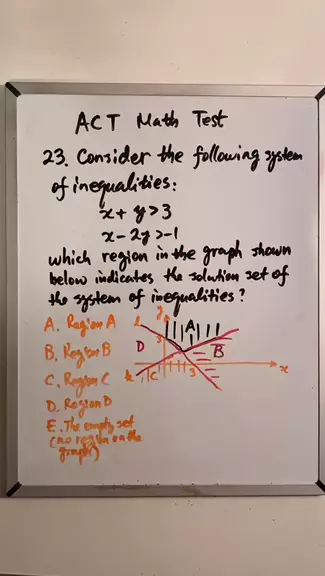 ACT Math Test
23. Consider the following system
of inequalities:
x + y > 3
x - 2y > -1
which region in the graph shown
below indicates the solution set of
the system of inequalities?
A. Region A
B. Region B
C. Region C
D. Region D
E. The empty set
(no region on the
graph)
l
y
A
3
D
B
k
C
3
x